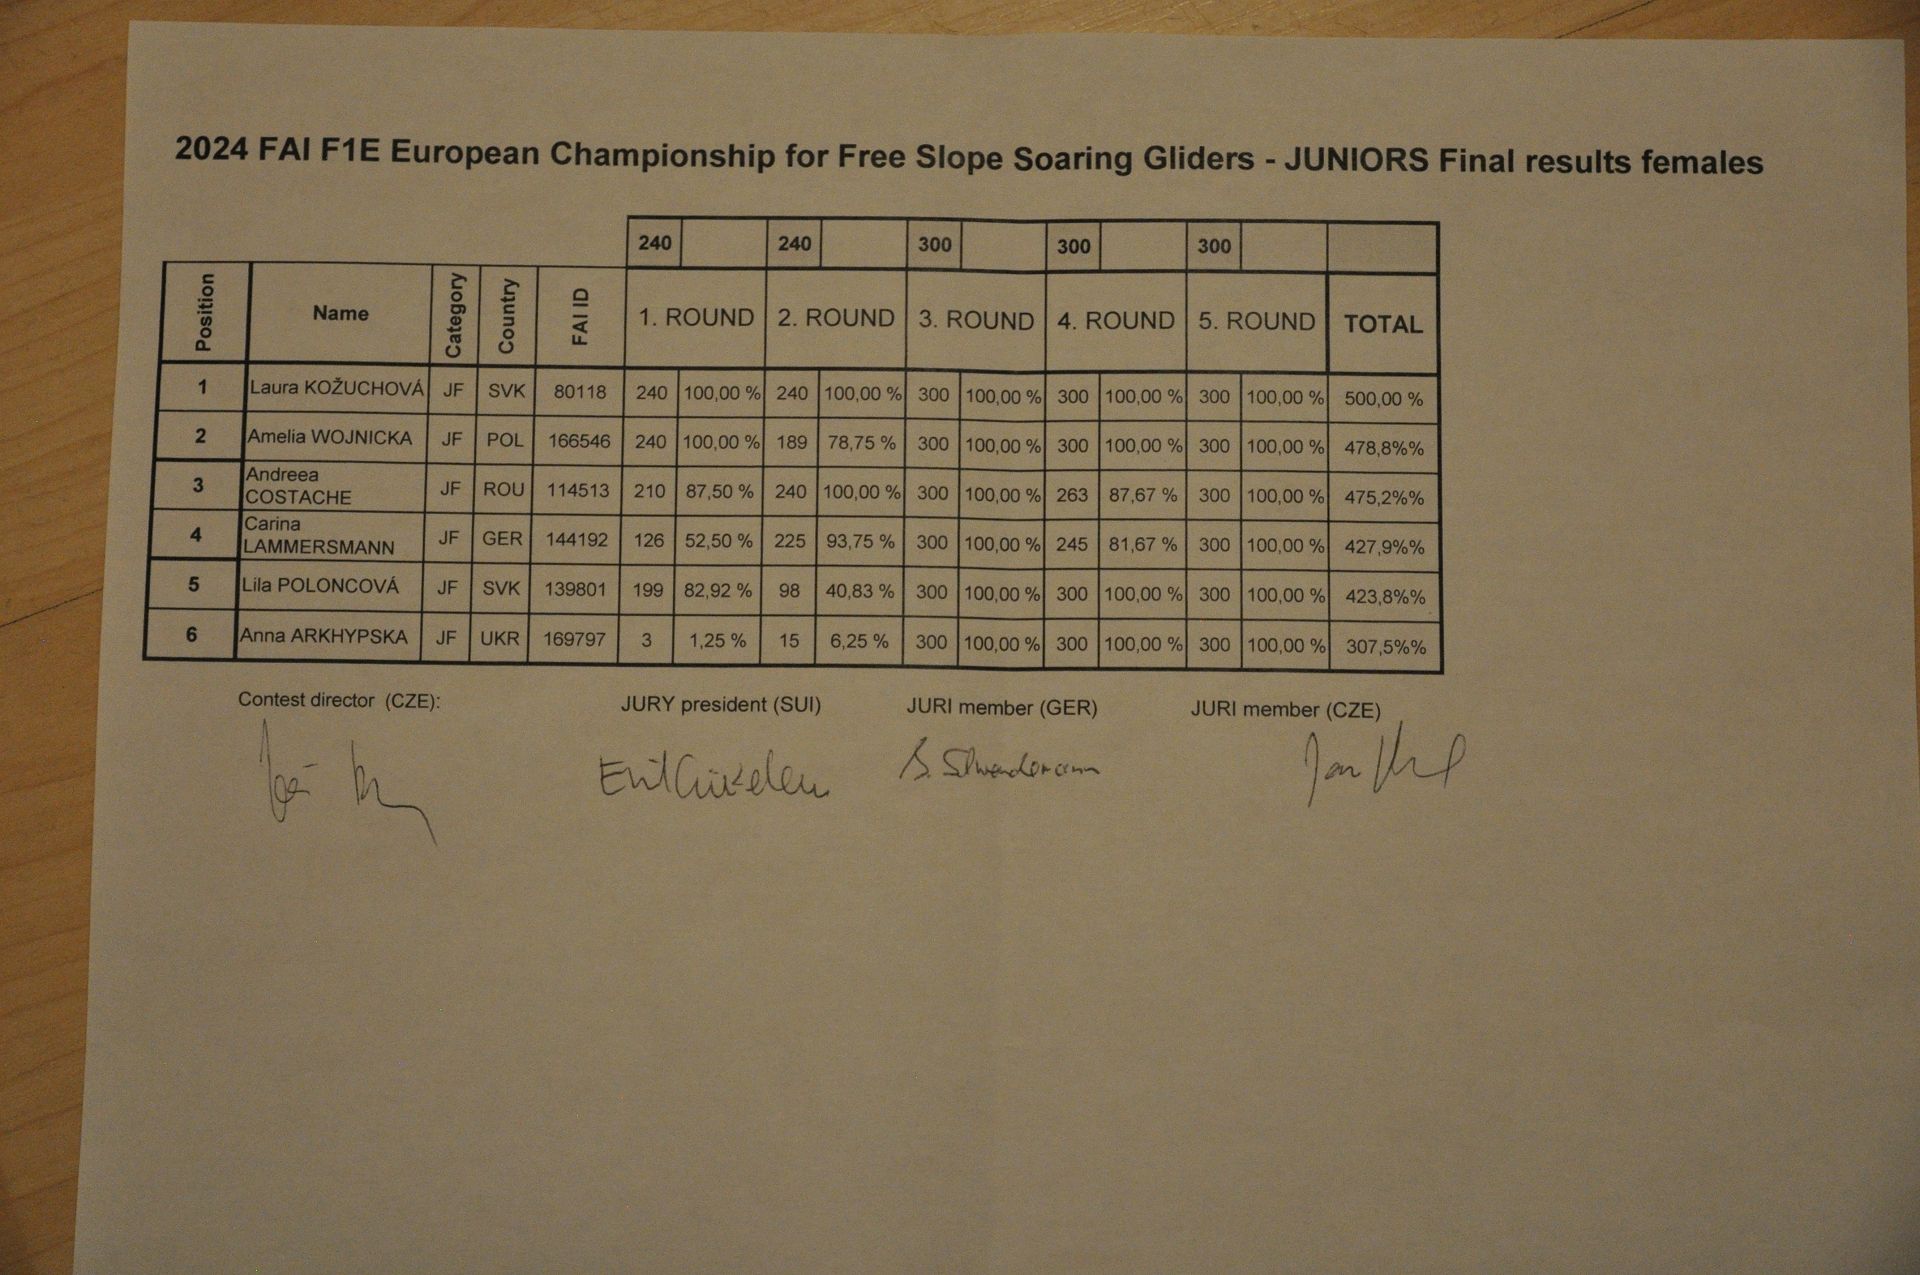 2024 FAI F1E European Championship for Free Slope Soaring Gliders - JUNIORS Final results females
240 240 300 300 300
Position Name Category Country FAI ID 1. ROUND 2. ROUND 3. ROUND 4. ROUND 5. ROUND TOTAL
1 Laura KOŽUCHOVÁ JF SVK 80118 240 100,00 % 240 100,00 % 300 100,00 % 300 100,00 % 300 100,00 % 500,00 %
2 Amelia WOJNICKA JF POL 166546 240 100,00 % 189 78,75 % 300 100,00 % 300 100,00 % 300 100,00 % 478,8%%
3 Andreea COSTACHE JF ROU 114513 210 87,50 % 240 100,00 % 300 100,00 % 263 87,67 % 300 100,00 % 475,2%%
4 Carina LAMMERSMANN JF GER 144192 126 52,50 % 225 93,75 % 300 100,00 % 245 81,67 % 300 100,00 % 427,9%%
5 Lila POLONCOVÁ JF SVK 139801 199 82,92 % 98 40,83 % 300 100,00 % 300 100,00 % 300 100,00 % 423,8%%
6 Anna ARKHYPSKA JF UKR 169797 3 1,25 % 15 6,25 % 300 100,00 % 300 100,00 % 300 100,00 % 307,5%%
Contest director (CZE): JURY president (SUI) JURI member (GER) JURI member (CZE)